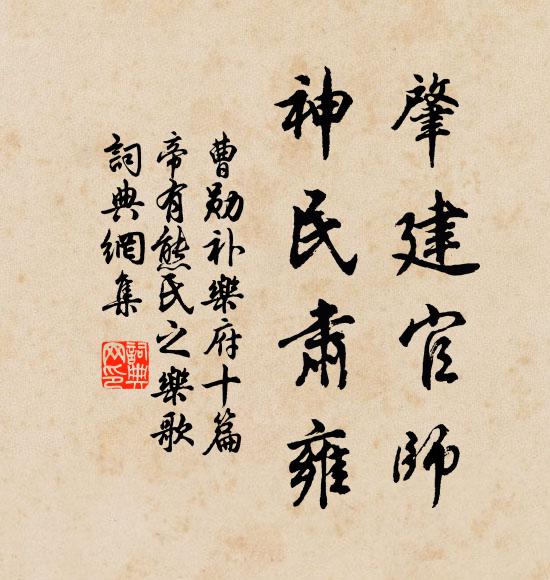 肇建官師
神民肅雍
曹勋补樂府十篇
帝有熊氏之樂歌
詞典網集
詞典網印